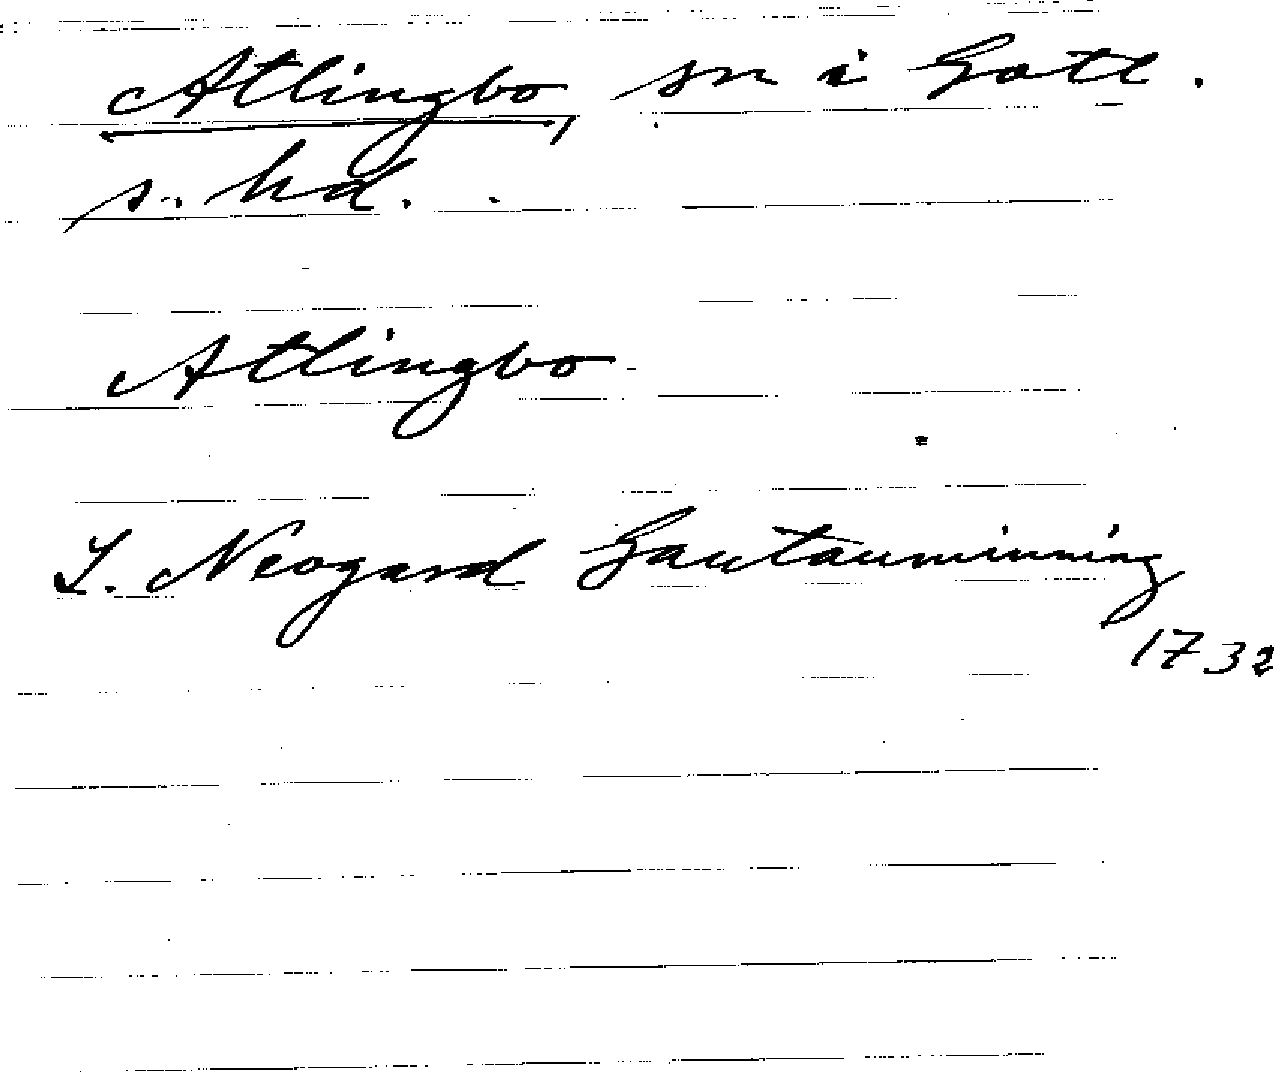 Atlingbo, sn i Gotl.
s. hd.
Atlingbo
L. Neogard Gautauminning
1732